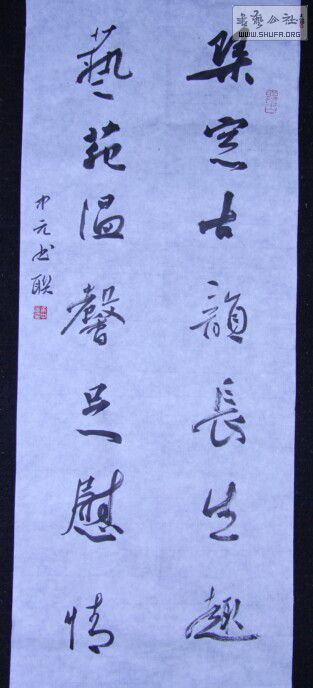 書藝公社
WWW.SHUFA.ORG
琹窓古韻長生趣
藝苑温馨足慰情
元书联